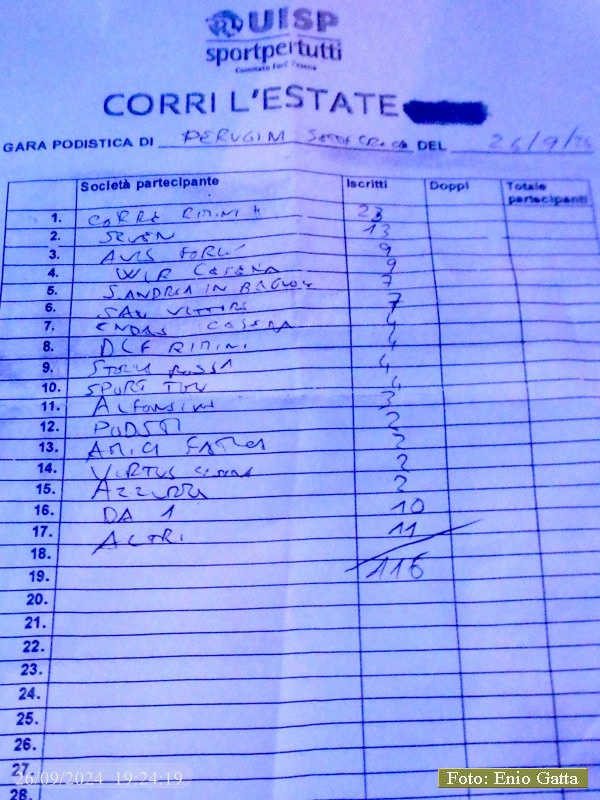 UISP
sportpertutti
Comitato Forlì Cesena
CORRI L'ESTATE
GARA PODISTICA DI PERUGINI DEL 26/9/24
Società partecipante Iscritti Doppi Totale partecipanti
1. CORRE RIMINI 23
2. SEVEN 13
3. AVIS FORLI 9
4. WIR CESENA 9
5. SANDREA IN BAGNOLO 7
6. SAN VITTORE 7
7. ENDAS CESENA 4
8. DLF RIMINI 4
9. STELLA ROSSA 4
10. SPORT 4
11. ALFONSINE 3
12. PODISTI 2
13. AMICI 2
14. VIRTUS CESENA 2
15. AZZURRA 2
16. DA 1 10
17. ALTRI 11
18.
19. 116
20.
21.
22.
23.
24.
25.
26.
27.
28.
26/09/2024 19:24:19
Foto: Enio Gatta